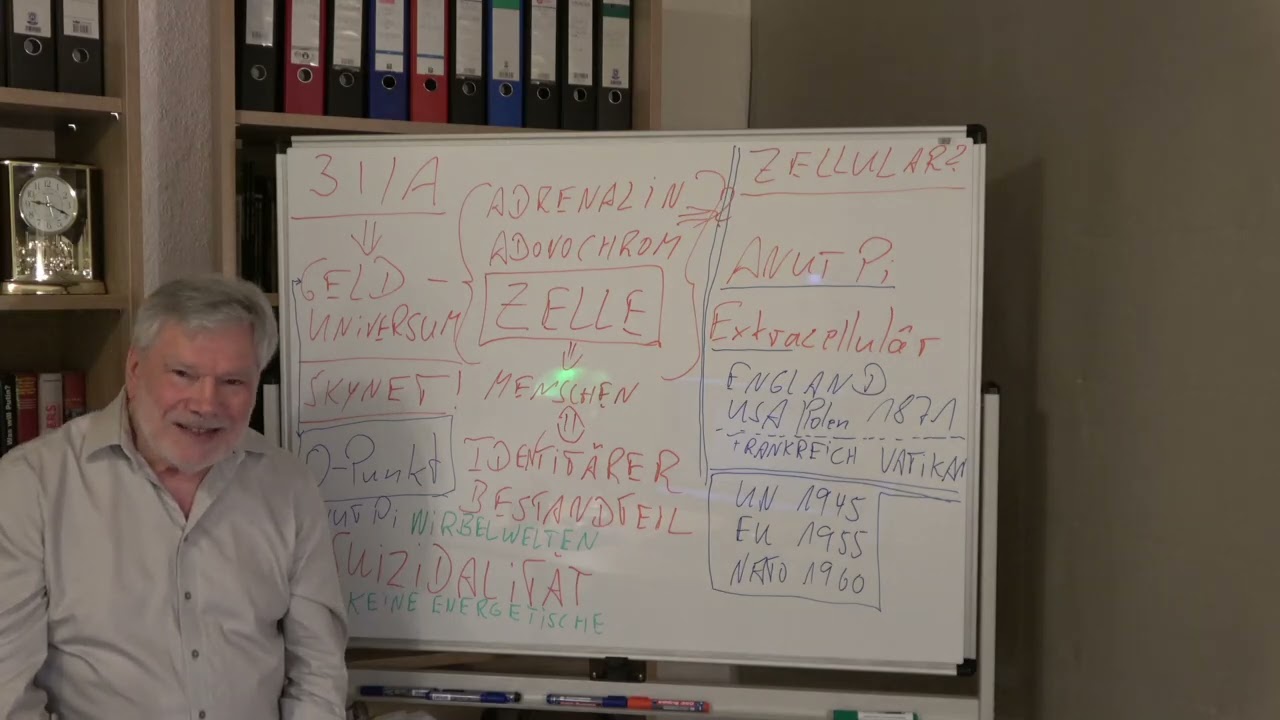 311/A
GELD -
UNIVERSUM
SKYNET!
O-Punkt
WIRBELWELTEN
SUIZIDALITÄT
KEINE ENERGETISCHE
ADRENALIN?
ADONOCHROM
ZELLE
MENSCHEN
IDENTITÄRER
BESTANDTEIL
ZELLULAR?
ANUT Pi
Extracellulär
ENGLAND
USA/Polen 1871
FRANKREICH VATIKAN
UN 1945
EU 1955
NATO 1960
Was will Putin?